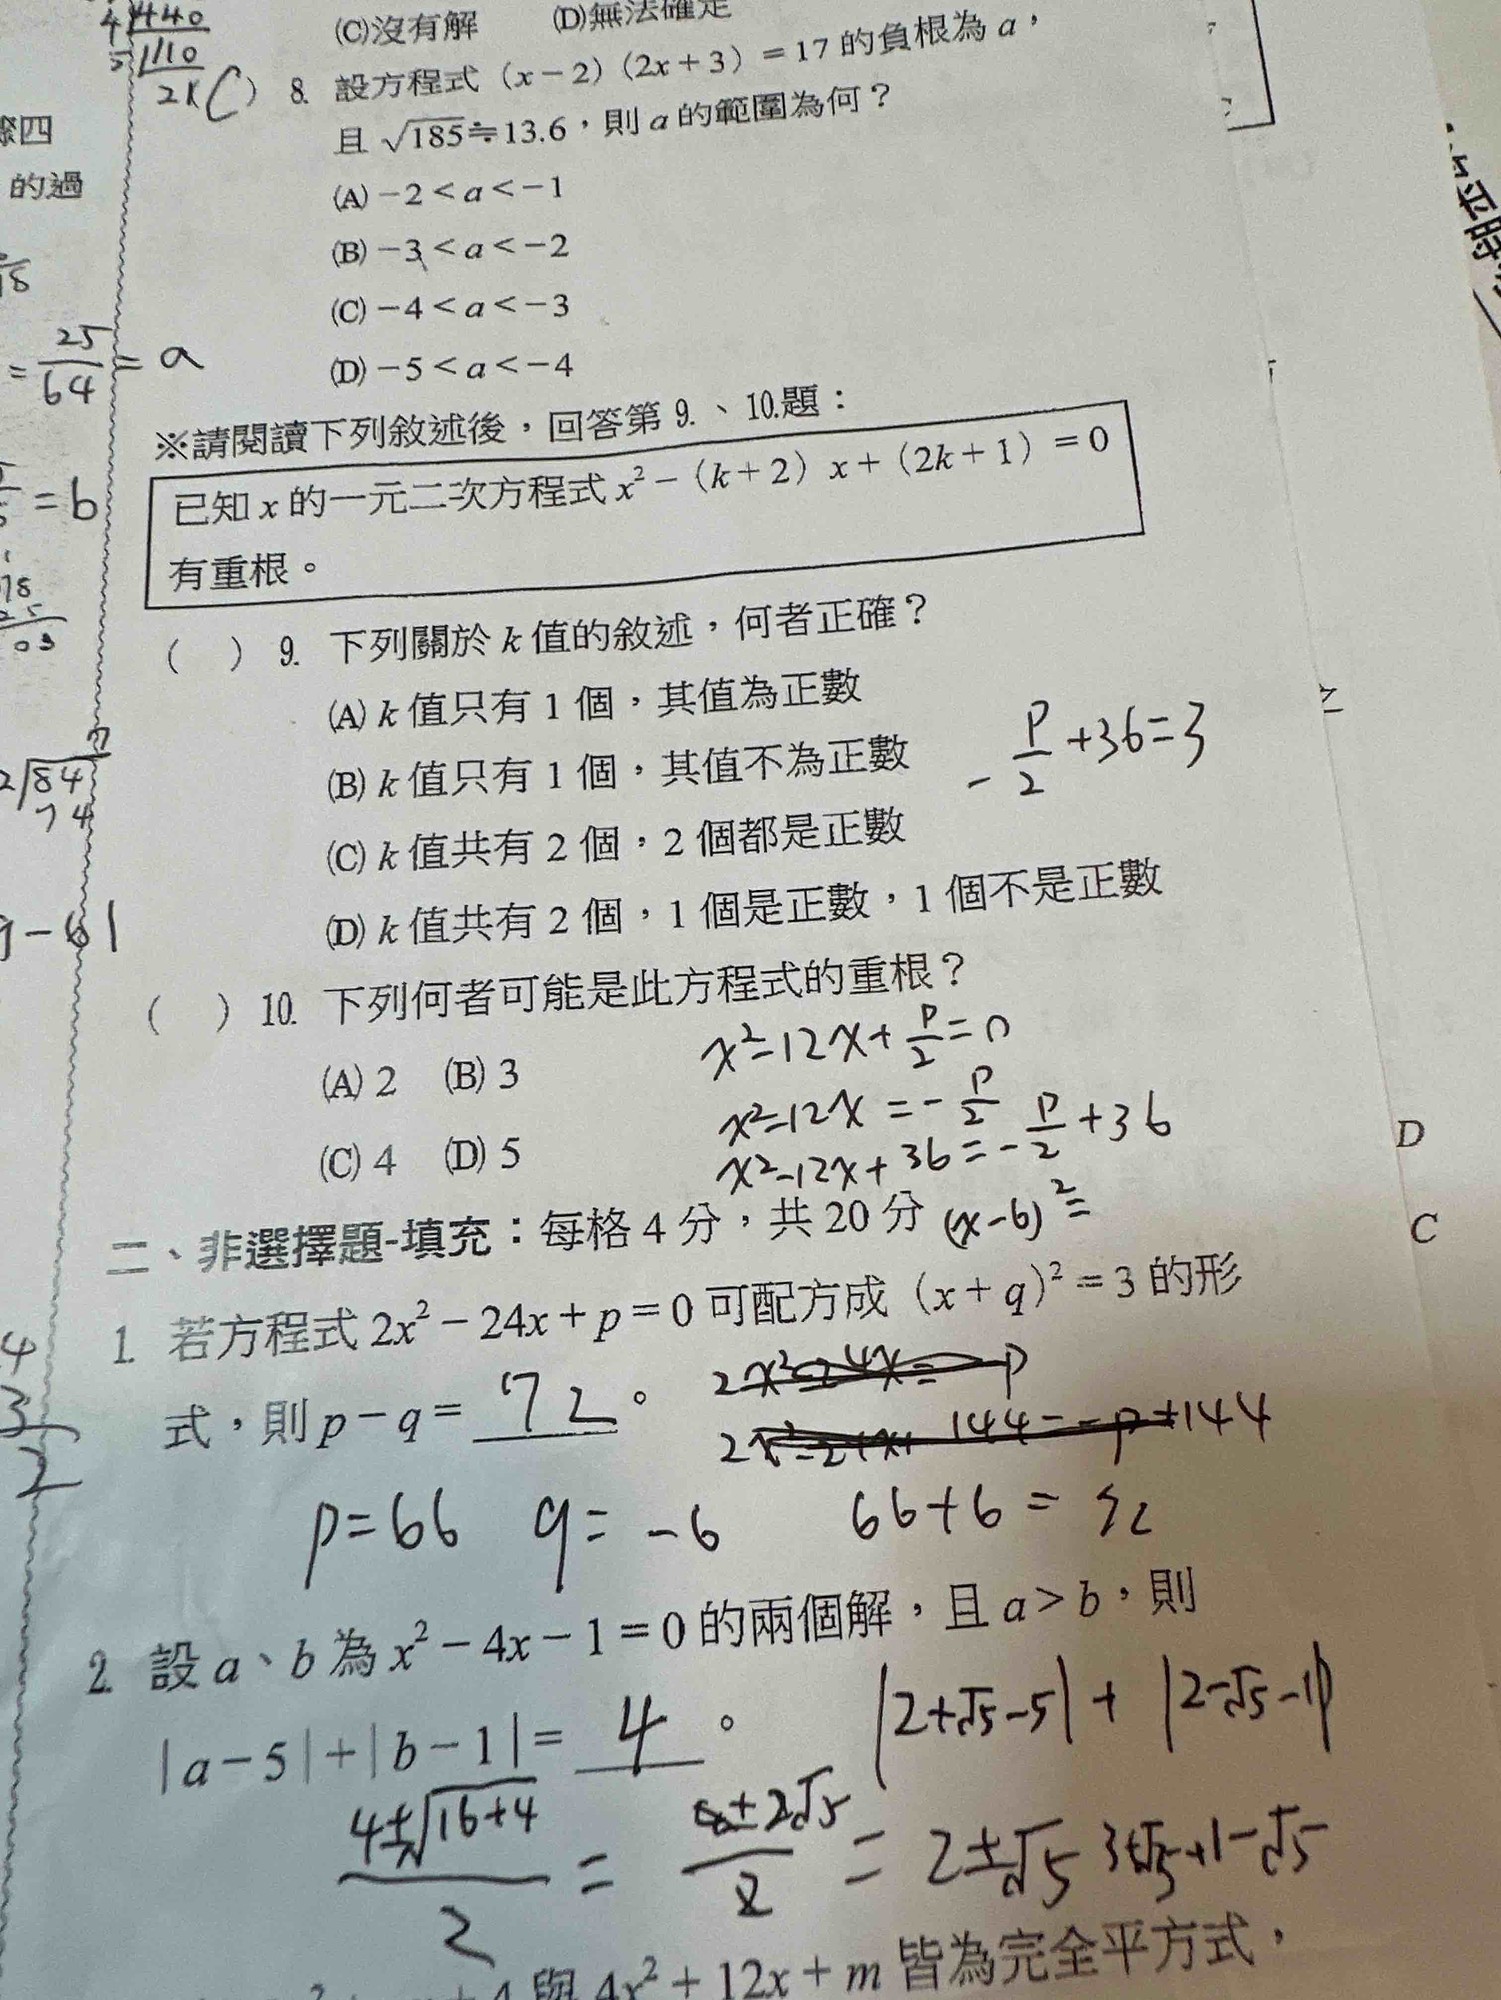 4 440
5 110
2x
(C)沒有解 (D)無法確定
(C) 8. 設方程式 (x-2)(2x+3)=17 的負根為 a,
且 √185≒13.6,則 a 的範圍為何?
(A) -2<a<-1
(B) -3<a<-2
(C) -4<a<-3
(D) -5<a<-4
的過
= 25/64 = a
= b
※請閱讀下列敘述後,回答第 9.、10.題:
已知 x 的一元二次方程式 x²-(k+2)x+(2k+1)=0
有重根。
( ) 9. 下列關於 k 值的敘述,何者正確?
(A) k 值只有 1 個,其值為正數
(B) k 值只有 1 個,其值不為正數
(C) k 值共有 2 個,2 個都是正數
(D) k 值共有 2 個,1 個是正數,1 個不是正數
-P/2+36=3
84
74
( ) 10. 下列何者可能是此方程式的重根?
(A) 2 (B) 3
(C) 4 (D) 5
x²-12x+P/2=0
x²-12x=-P/2
x²-12x+36=-P/2+36
(x-6)²=
D
C
二、非選擇題-填充:每格 4 分,共 20 分
1. 若方程式 2x²-24x+p=0 可配方成 (x+q)²=3 的形
式,則 p-q= 72 。
p=66 q=-6 66+6=72
2. 設 a、b 為 x²-4x-1=0 的兩個解,且 a>b,則
|a-5|+|b-1|= 4 。
|2+√5-5|+|2-√5-1|
4±√16+4/2 = 4±2√5/2 = 2±√5 3-√5+1-√5
4x²+12x+m 皆為完全平方式,